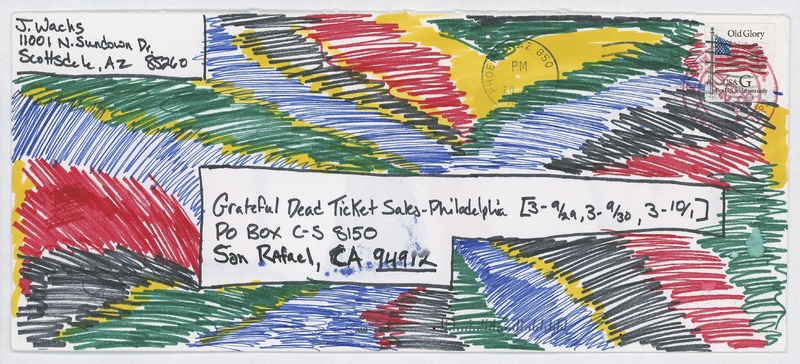 J. Wachs
11001 N. Sundown Dr.
Scottsdale, AZ 85260
PHOENIX AZ 850
PM
20
Old Glory
USA G
For U.S. addresses only
Grateful Dead Ticket Sales-Philadelphia [3-9/29, 3-9/30, 3-10/1]
PO BOX C-S 8150
San Rafael, CA 94912